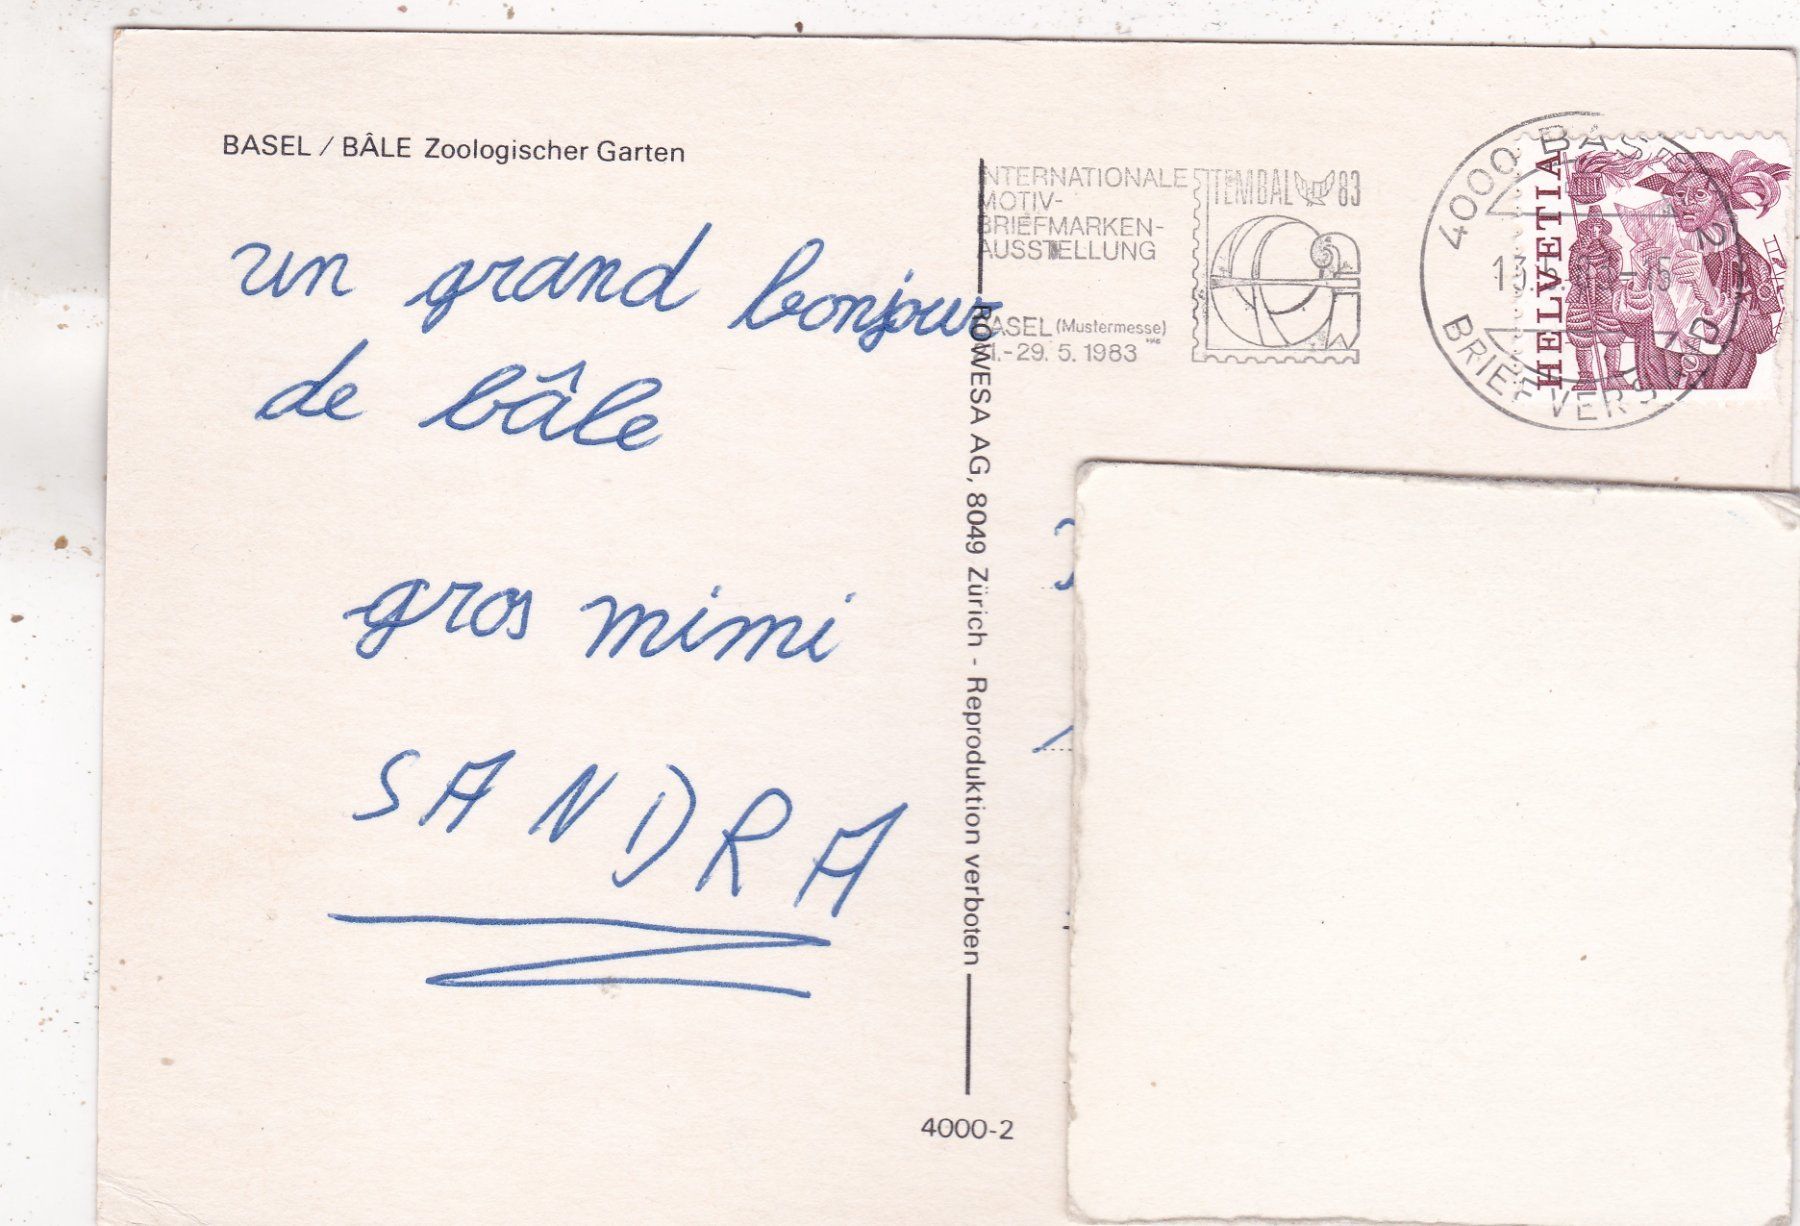 BASEL / BÂLE Zoologischer Garten
un grand bonjour
de bâle
gros mimi
SANDRA
ROWESA AG, 8049 Zürich - Reproduktion verboten
4000-2
INTERNATIONALE
MOTIV-
BRIEFMARKEN-
AUSSTELLUNG
BASEL (Mustermesse)
-29. 5. 1983
TEMBAL 83
4000 BASEL 2
BRIEFVERSAND
HELVETIA